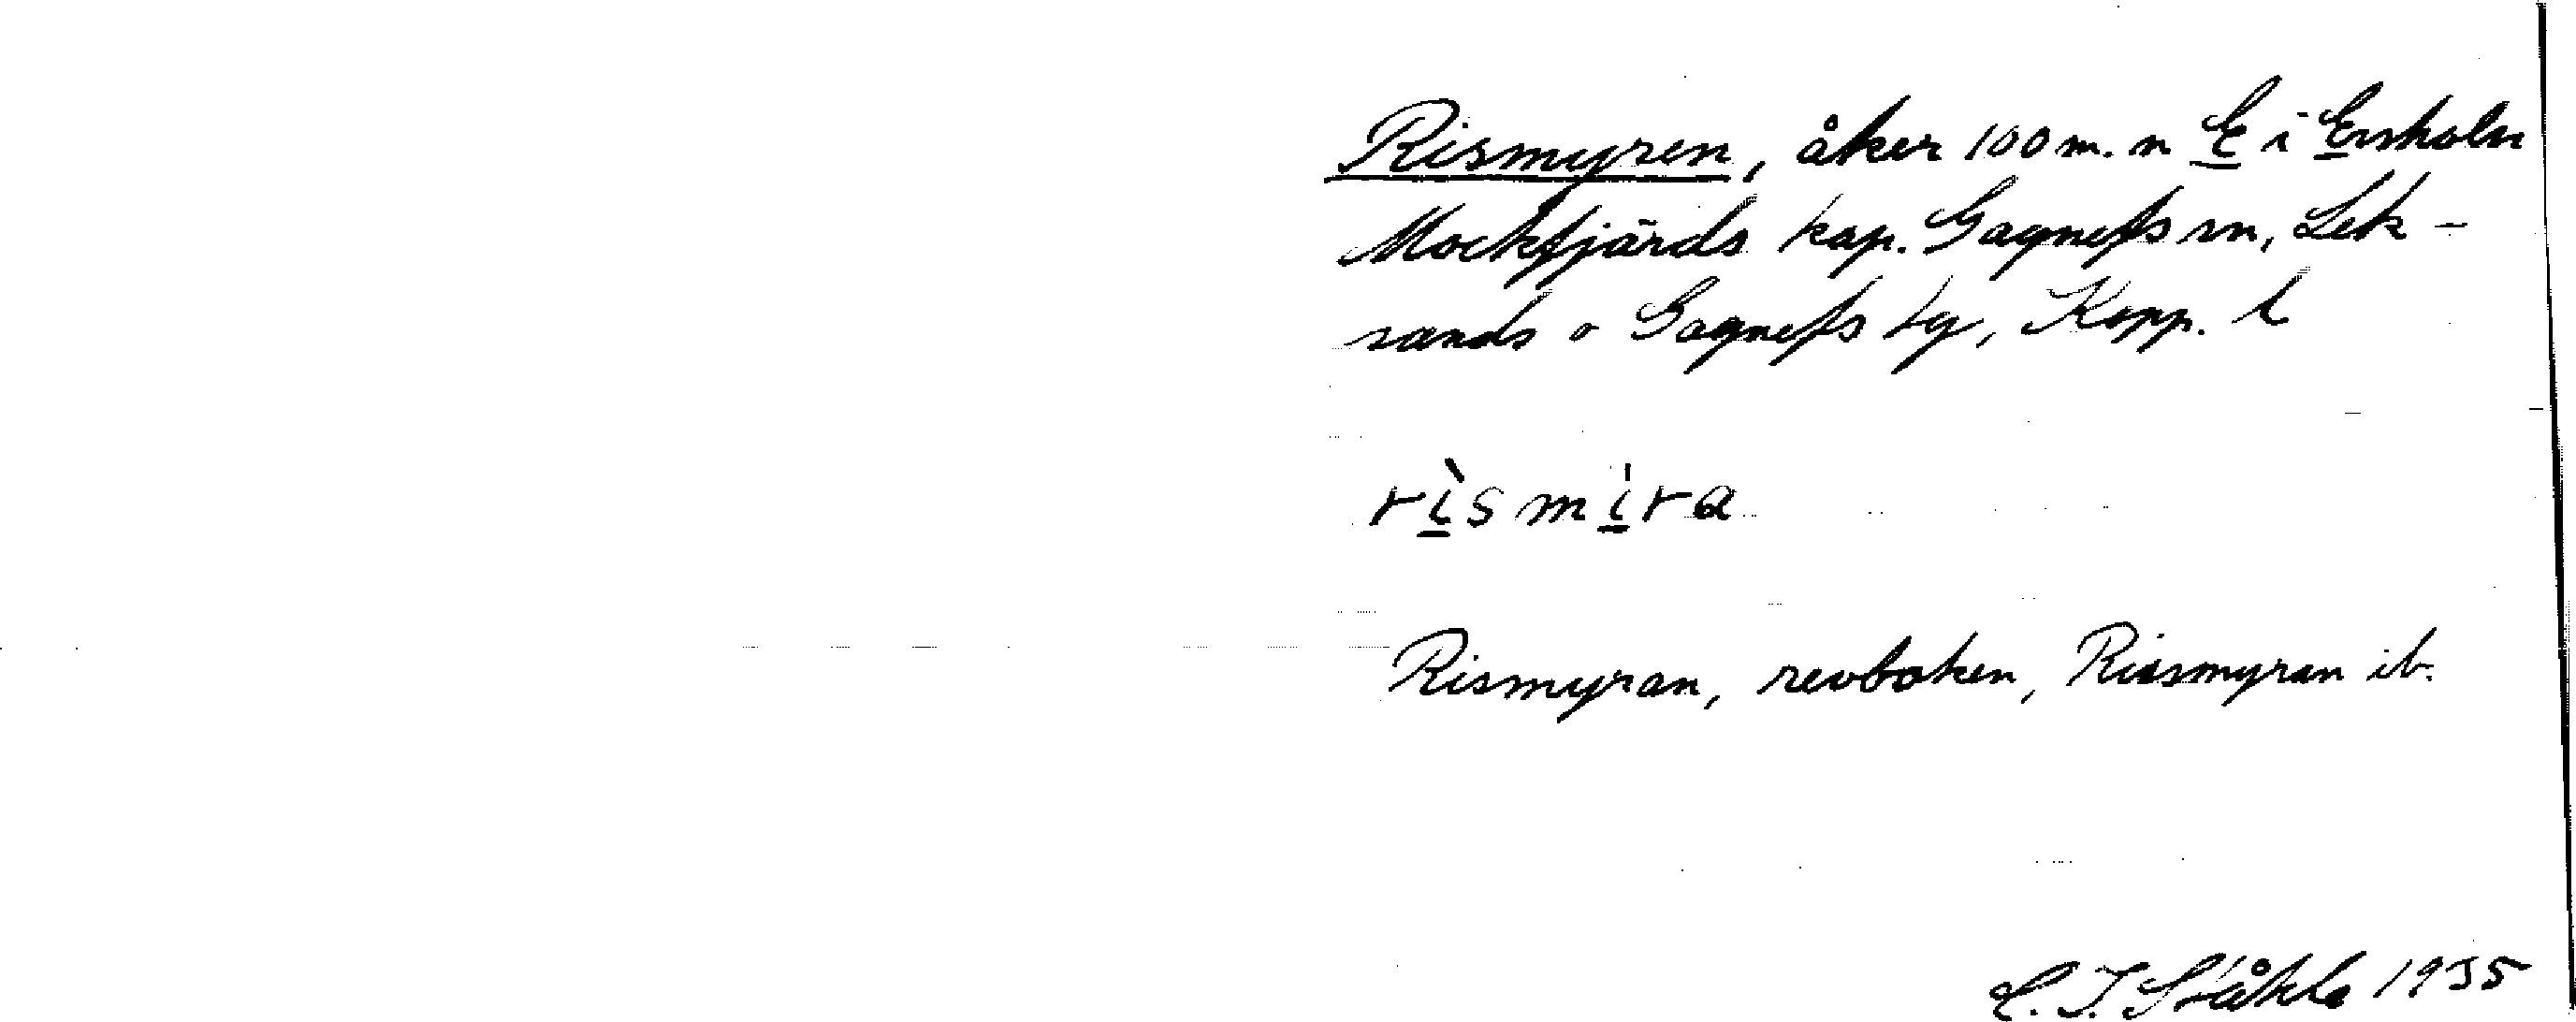 Rismyren, åker 100 m. n E i Ersholn
Mockfjärds kap. Gagnefs sn, Lek-
sands o Gagnefs tg, Kopp. l
rìsmi̍ra
Rismyran, revboken, Riismyran ib.
C. I. Ståhle 1935